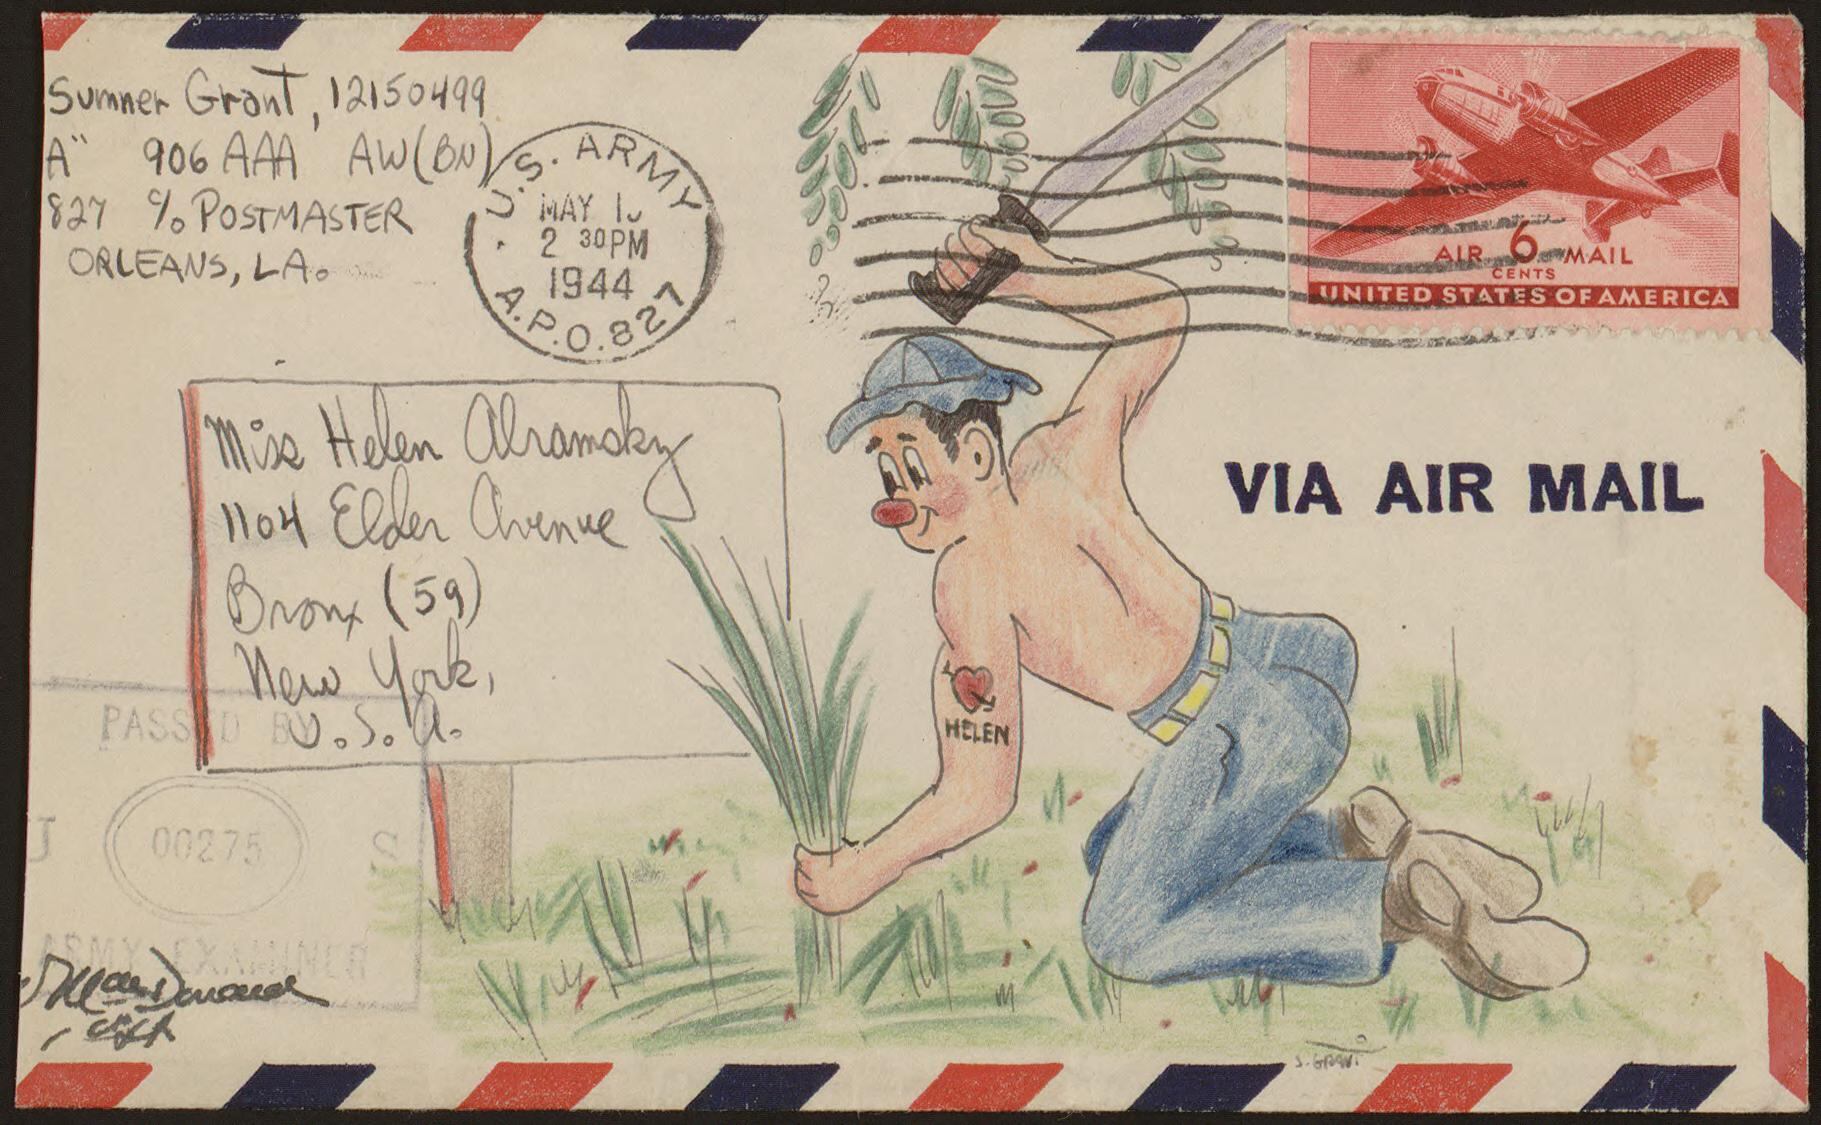 Sumner Grant, 12150499
A" 906 AAA AW(BN)
827 c/o POSTMASTER
ORLEANS, LA.
U.S. ARMY
MAY
2 30PM
1944
A.P.O. 827
AIR 6 MAIL
CENTS
UNITED STATES OF AMERICA
Miss Helen Abramsky
1104 Elder Avenue
Bronx (59)
New York,
U.S.A.
VIA AIR MAIL
HELEN
PASSED BY
U S
00275
ARMY EXAMINER
S. GRANT